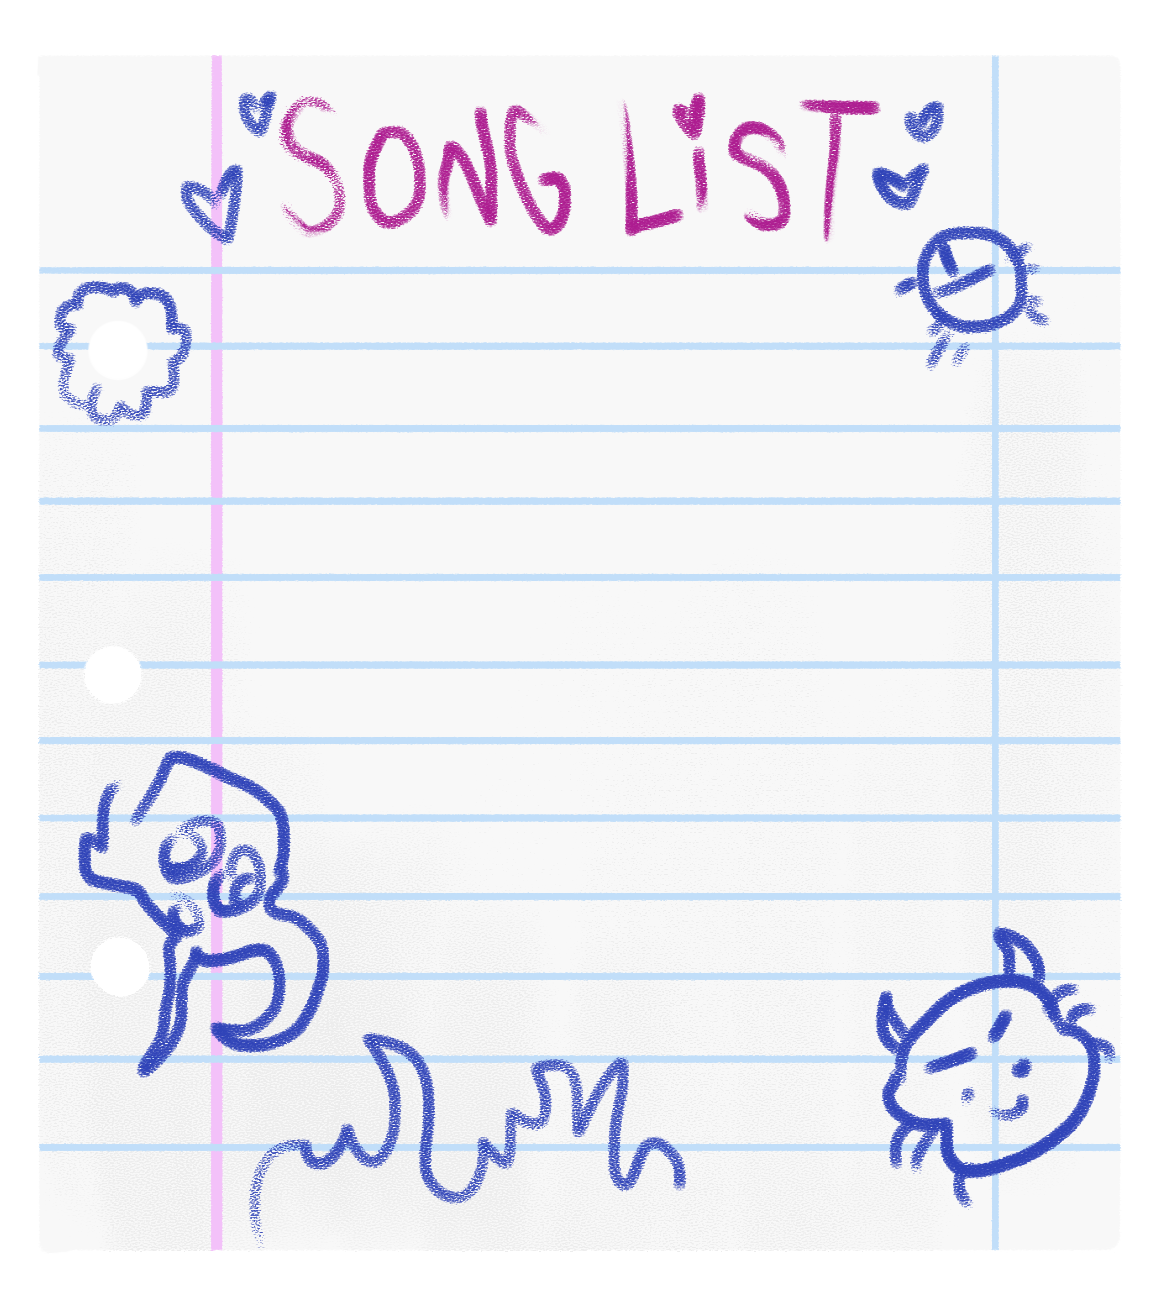 SONG LiST